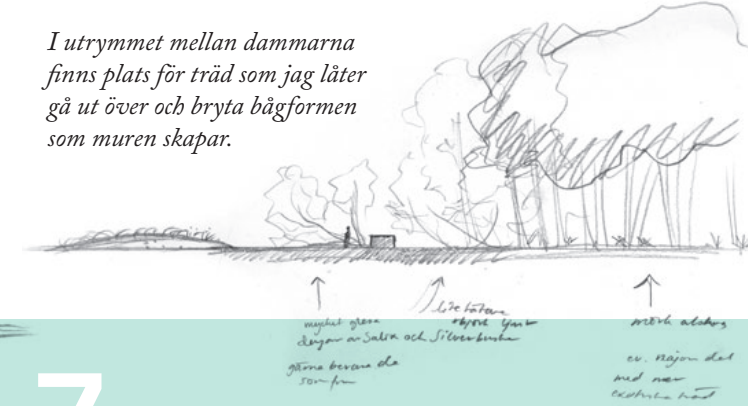 I utrymmet mellan dammarna
finns plats för träd som jag låter
gå ut över och bryta bågformen
som muren skapar.
lite tätare
mycket glesa
dungar av Salix och Silverbuske
gärna bevara de
som finns
mörk alskog
ev. någon del
med mer
exotiska träd
7